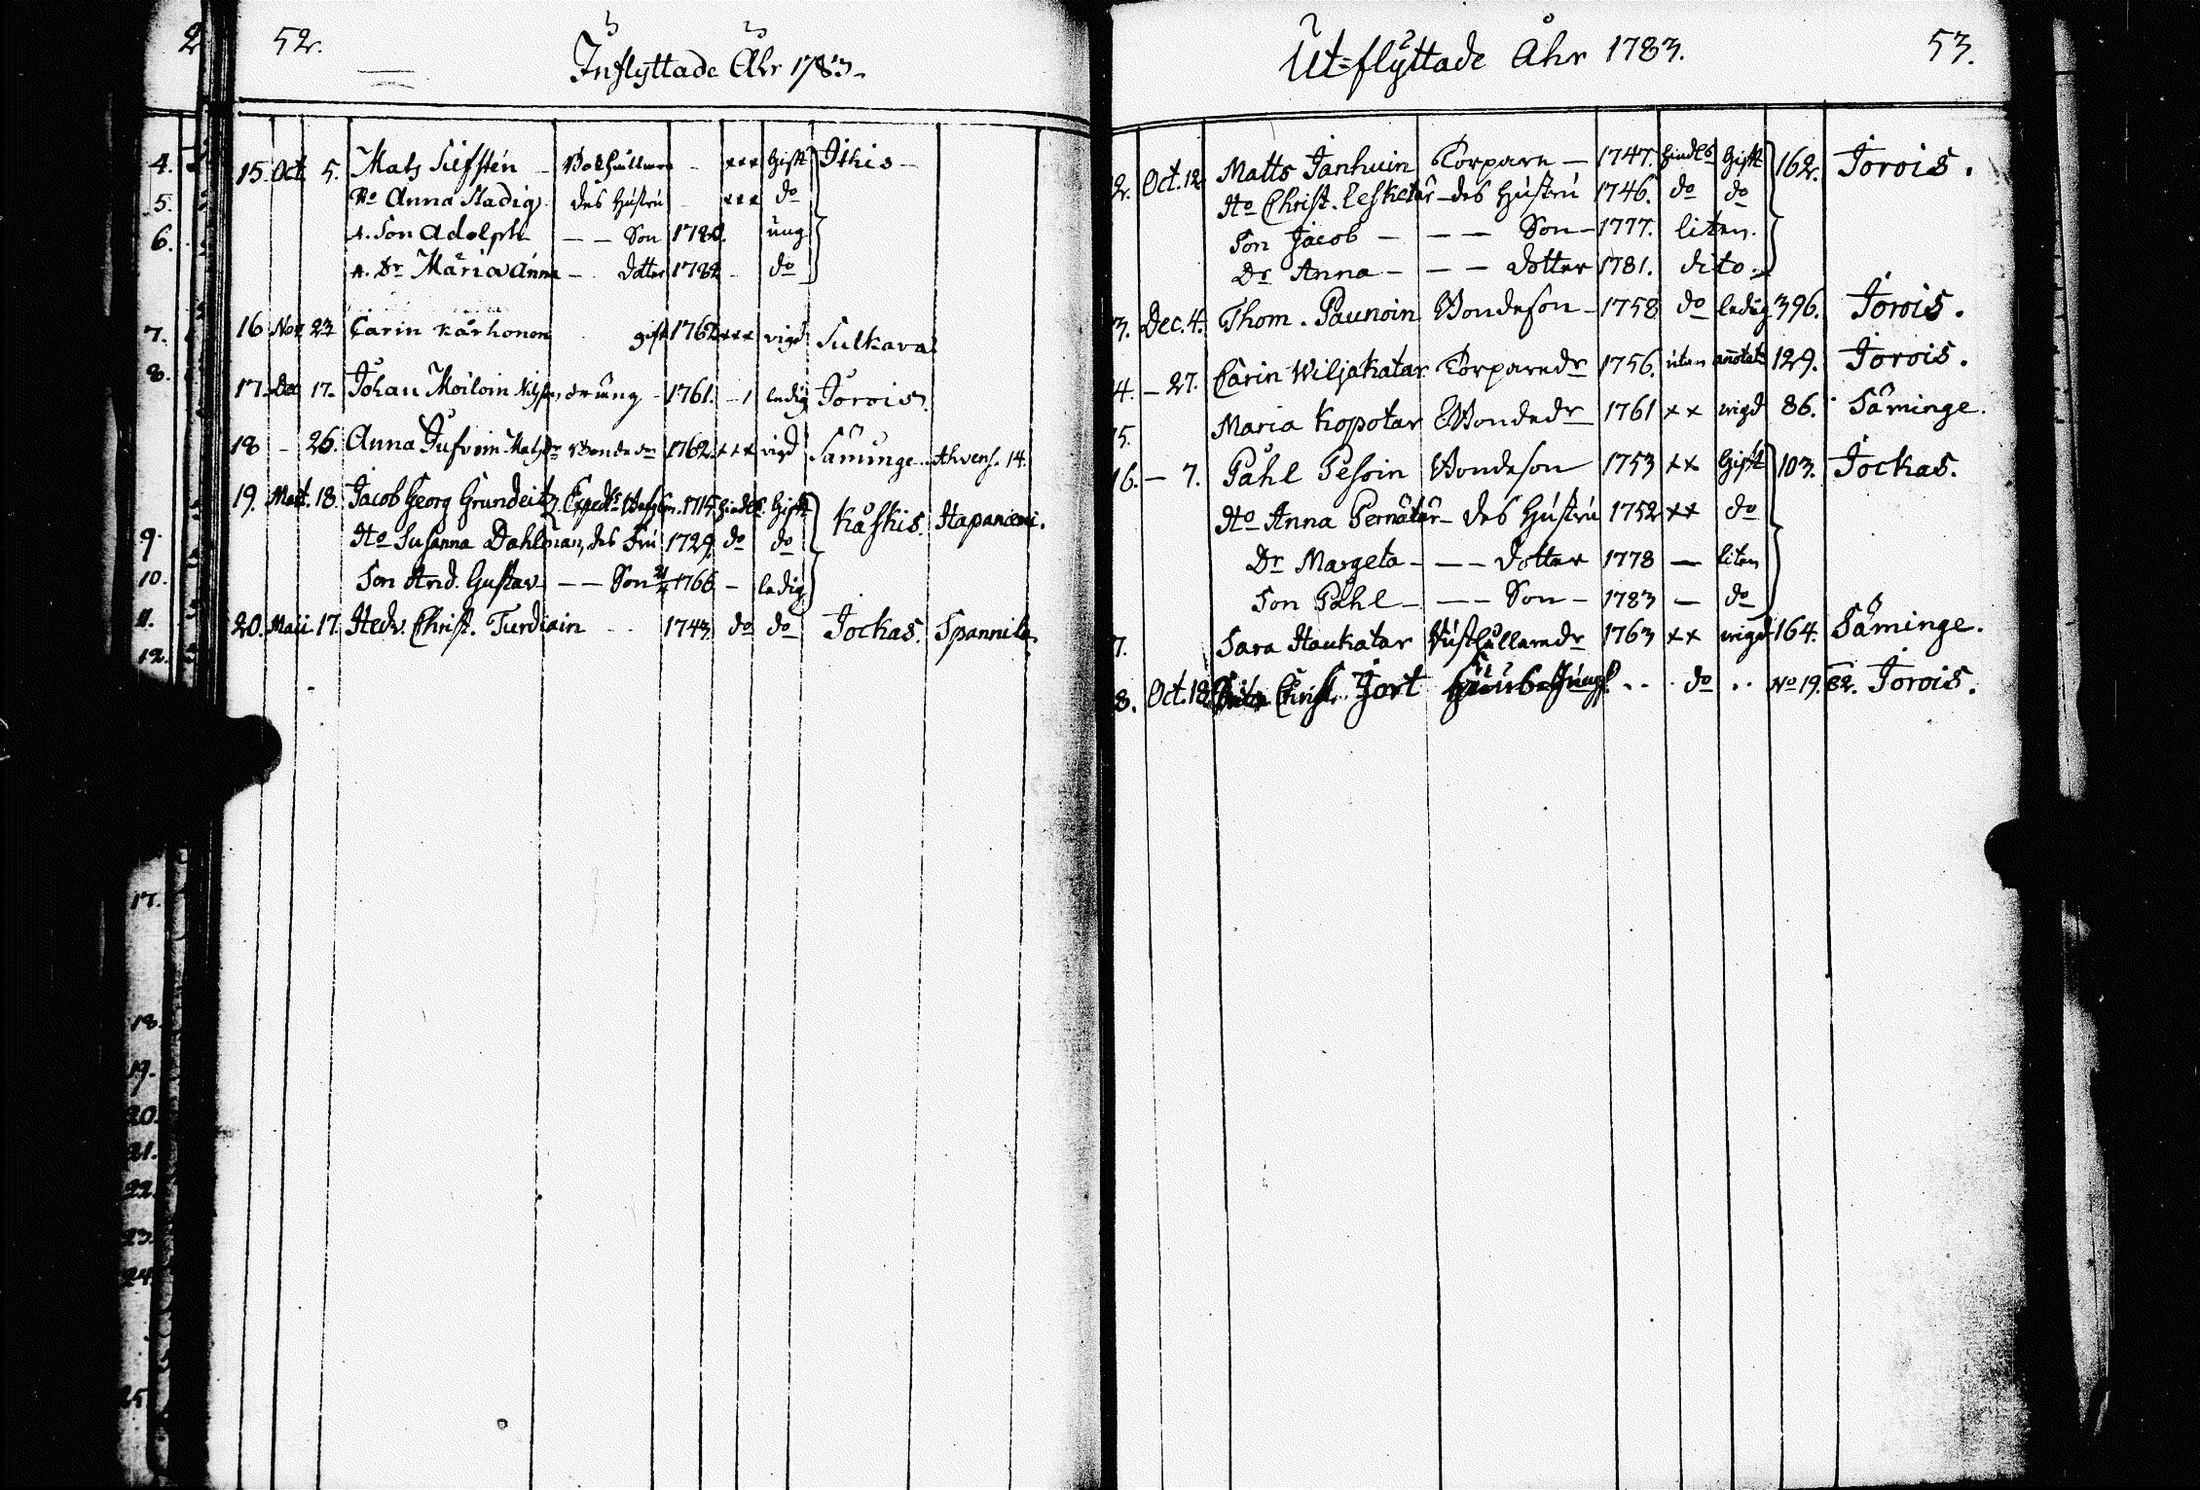 52.
Inflyttade Åhr 1783.
15. Oct. 5. Mats Bokhållare - xxx Gift Ithis -
Ho Anna Stadig des Hustru - xxx do
A. Son Adolph - - Son 1780. ung
A. Dr Maria Anna - Dotter 1782 - do
16 Nov 23 Carin Karhonen gift 1762 xxx vigd Sulkava
17. Dec 17. Johan Moiloin dräng - 1761. - 1 ledig Jorois.
18 - 26. Anna Jufvoin Bonde Dr 1762. xxx vigd Säminge. Ahvens. 14.
19. Mart. 18. Jacob Georg Grundeitz. 1715 Gift Kaskis. Hapaniemi.
Ho Susanna Dahlman, des Fru 1729. do do
Son And. Gustav - - Son 1766 - ledig
20. Maii 17. Hedv. Christ. Turdiain - - 1743. do do Jockas. Spannila.
Ut=flyttade Åhr 1783.
53.
2. Oct. 12. Matts Janhuin Torpare - 1747. Gift 162. Jorois.
Ho Christ. Lesketär - des Hustru 1746. do do
Son Jacob - - - Son - 1777. liten.
Dr Anna - - - Dotter 1781. dito.
3. Dec. 4. Thom. Paunoin Bondeson - 1758 do ledig 396. Jorois.
4. - 27. Carin Wiljakatar Torparedr 1756. utan annotat 129. Jorois.
5. Maria Kopotar Bondedr 1761 xx vigd 86. Säminge.
16. - 7. Påhl Pesoin Bondeson 1753 xx Gift 103. Jockas.
Ho Anna Pernätär - des Hustru 1752 xx do
Dr Margeta - - - Dotter 1778 - liten
Son Påhl - - - Son - 1783 - do
7. Sara Haukatar 1763 xx vigd 164. Säminge.
8. Oct. 18. Christ. Jort - - do - - No 19. 82. Jorois.